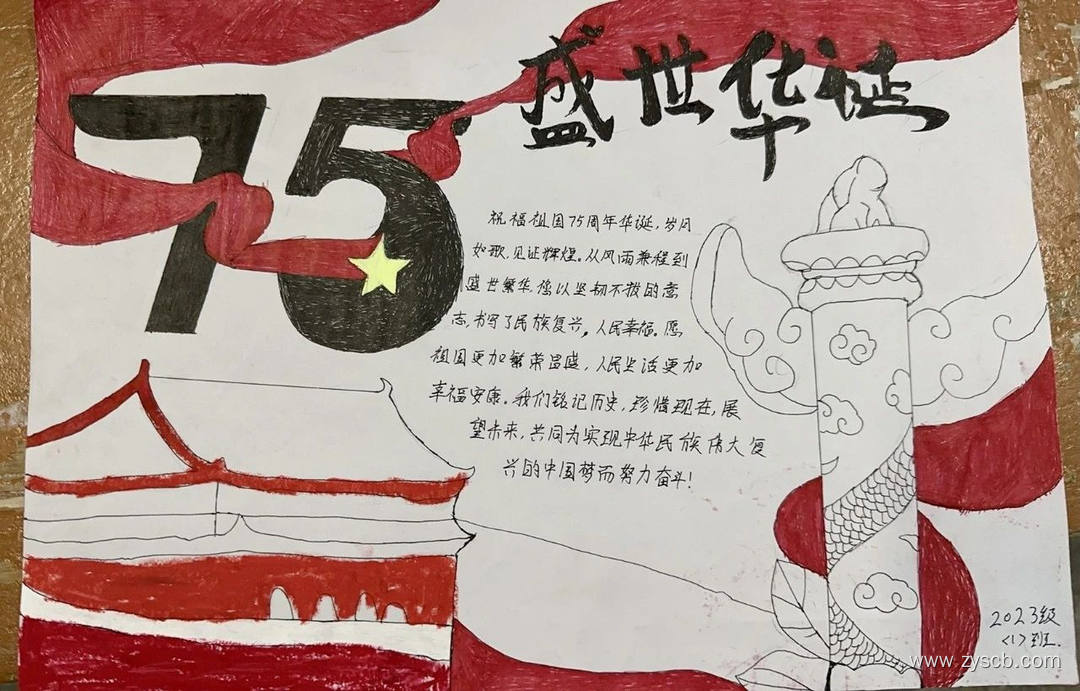 75
盛世华诞
祝福祖国75周年华诞，岁月
如歌，见证辉煌。从风雨兼程到
盛世繁华，您以坚韧不拔的意
志，书写了民族复兴，人民幸福。愿
祖国更加繁荣昌盛，人民生活更加
幸福安康。我们铭记历史，珍惜现在，展
望未来，共同为实现中华民族伟大复
兴的中国梦而努力奋斗！
2023级
<1>班.
www.zyscb.com